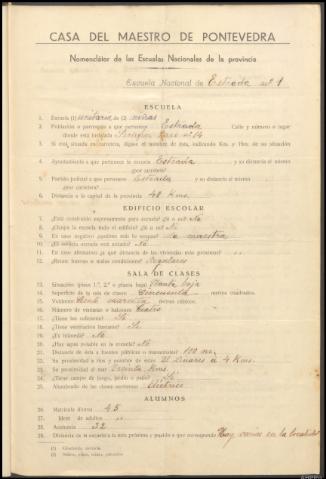 CASA DEL MAESTRO DE PONTEVEDRA
Nomenclátor de las Escuelas Nacionales de la provincia
Escuela Nacional de Estrada nº 1
ESCUELA
1. Escuela (1) unitaria de (2) niñas
2. Población o parroquia a que pertenece Estrada Calle y número o lugar
donde está instalada
3. Si está situada en carretera, dígase el nombre de ésta, indicando Km. y Hm. de su situación
4. Ayuntamiento a que pertenece la escuela Estrada y su distancia al mismo
(por carretera)
5. Partido judicial a que pertenece Estrada y su distancia al mismo
(por carretera)
6. Distancia a la capital de la provincia 48 Kms.
EDIFICIO ESCOLAR
7. ¿Está construido expresamente para escuela? ¿sí o no? No
8. ¿Ocupa la escuela todo el edificio? ¿sí o no? No
9. En caso negativo ¿quiénes más lo ocupan? La maestra
10. ¿El edificio escuela está aislado? No
11. En caso afirmativo ¿a qué distancia de las viviendas más próximas?
12. ¿Reúne buenas o malas condiciones? Regulares
SALA DE CLASES
13. Situación: (pisos 1.º, 2.º o planta baja) Planta baja
14. Superficie de la sala de clases Cincuenta metros cuadrados.
15. Volúmen Ciento cuarenta metros cúbicos.
16. Número de ventanas o balcones Cuatro
17. ¿Tiene luz suficiente? Sí
18. ¿Tiene ventilación bastante? Sí
19. ¿Es húmeda? No
20. ¿Hay agua potable en la escuela? No
21. Distancia de ésta a fuentes públicas o manantiales? 100 m.
22. Su proximidad a ríos y nombre de éstos El Linares a 4 Kms.
23. Su proximidad al mar Treinta Kms.
24. ¿Tiene campo de juego, jardín o patio? Sí
25. Alumbrado de las clases nocturnas Eléctrico
ALUMNOS
26. Matrícula diurna 45
27. Idem de adultos
28. Asistencia 32
29. Distancia de la escuela a la más próxima y pueblo a que corresponde Hay varias en la localidad
(1) Graduada, unitaria
(2) Niños, niñas, mixta, párvulos